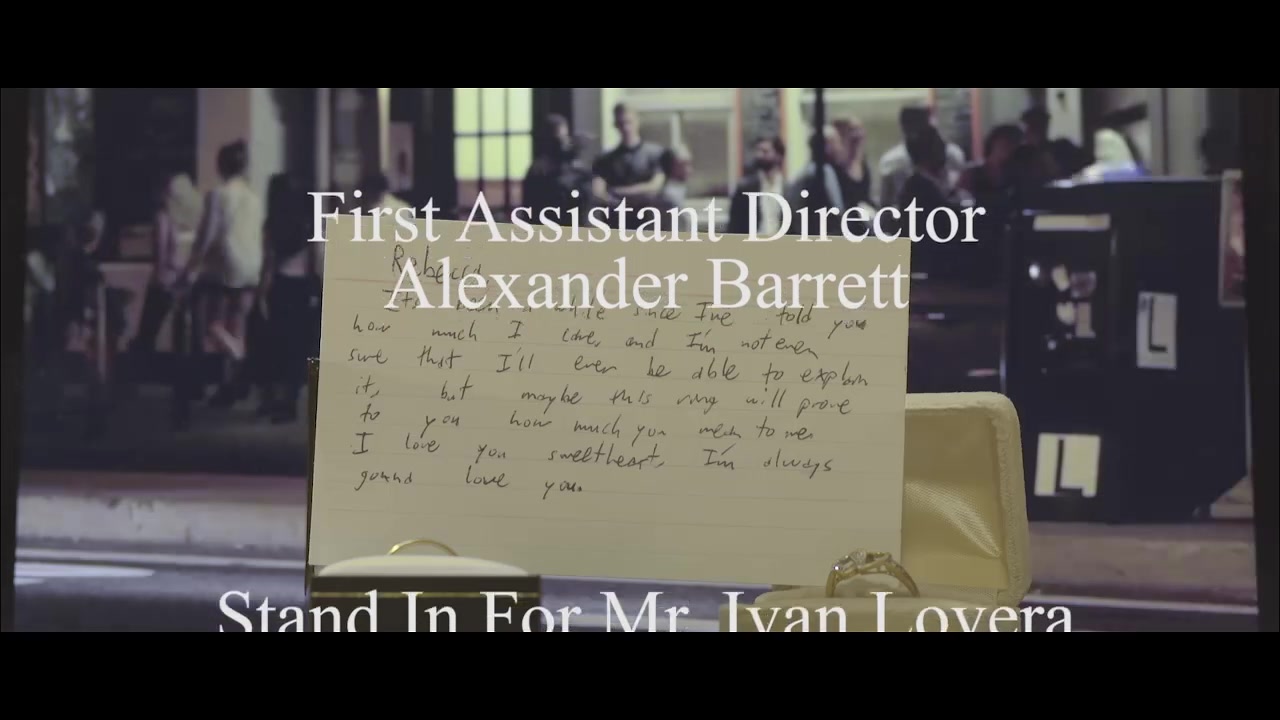 First Assistant Director
Alexander Barrett
Rebecca
It's been a while since I've told you
how much I love, and I'm not even
sure that I'll ever be able to explain
it, but maybe this ring will prove
to you how much you mean to me.
I love you sweetheart, I'm always
gunna love you.
Stand In For Mr. Ivan Lovera